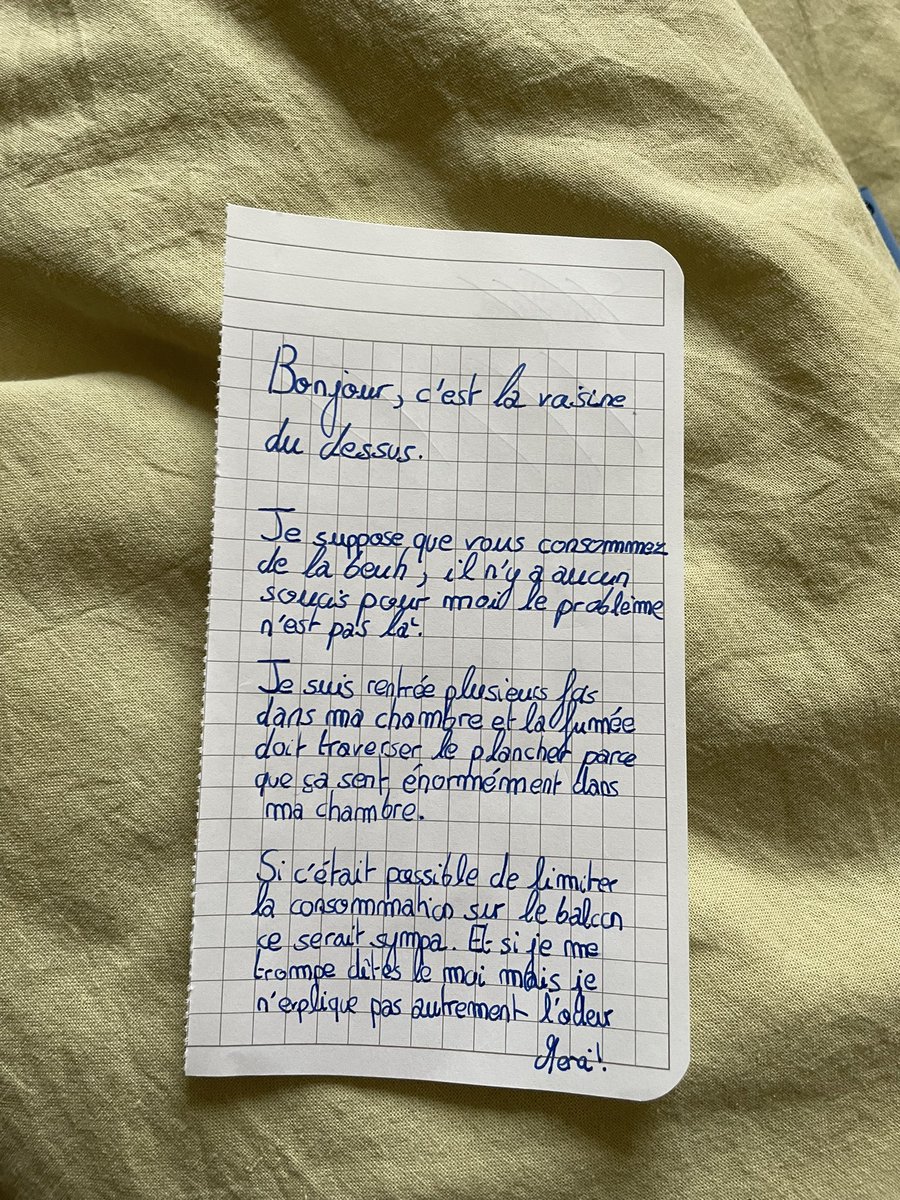 Bonjour, c'est la voisine
du dessus.
Je suppose que vous consommez
de la beuh, il n'y a aucun
soucis pour moi le problème
n'est pas là.
Je suis rentrée plusieurs fois
dans ma chambre et la fumée
doit traverser le plancher parce
que ça sent énormément dans
ma chambre.
Si c'était possible de limiter
la consommation sur le balcon
ce serait sympa. Et si je me
trompe dites le moi mais je
n'explique pas autrement l'odeur
Merci!